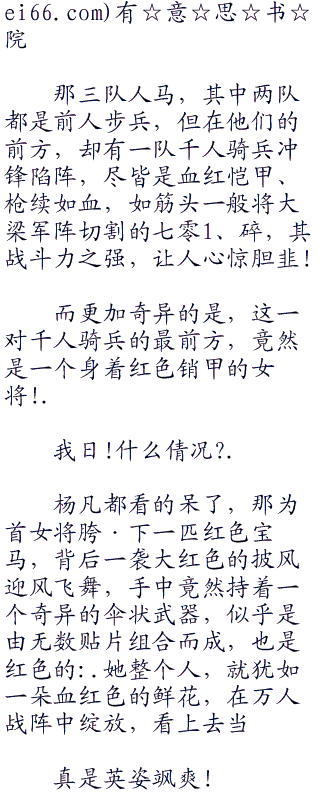 ei66.com)有☆意☆思☆书☆
院
那三队人马，其中两队
都是前人步兵，但在他们的
前方，却有一队千人骑兵冲
锋陷阵，尽皆是血红恺甲、
枪续如血，如筋头一般将大
梁军阵切割的七零1、碎，其
战斗力之强，让人心惊胆韭!
而更加奇异的是，这一
对千人骑兵的最前方，竟然
是一个身着红色销甲的女
将!.
我日!什么倩况?.
杨凡都看的呆了，那为
首女将胯·下一匹红色宝
马，背后一袭大红色的披风
迎风飞舞，手中竟然持着一
个奇异的伞状武器，似乎是
由无数贴片组合而成，也是
红色的:.她整个人，就犹如
一朵血红色的鲜花，在万人
战阵中绽放，看上去当
真是英姿飒爽!